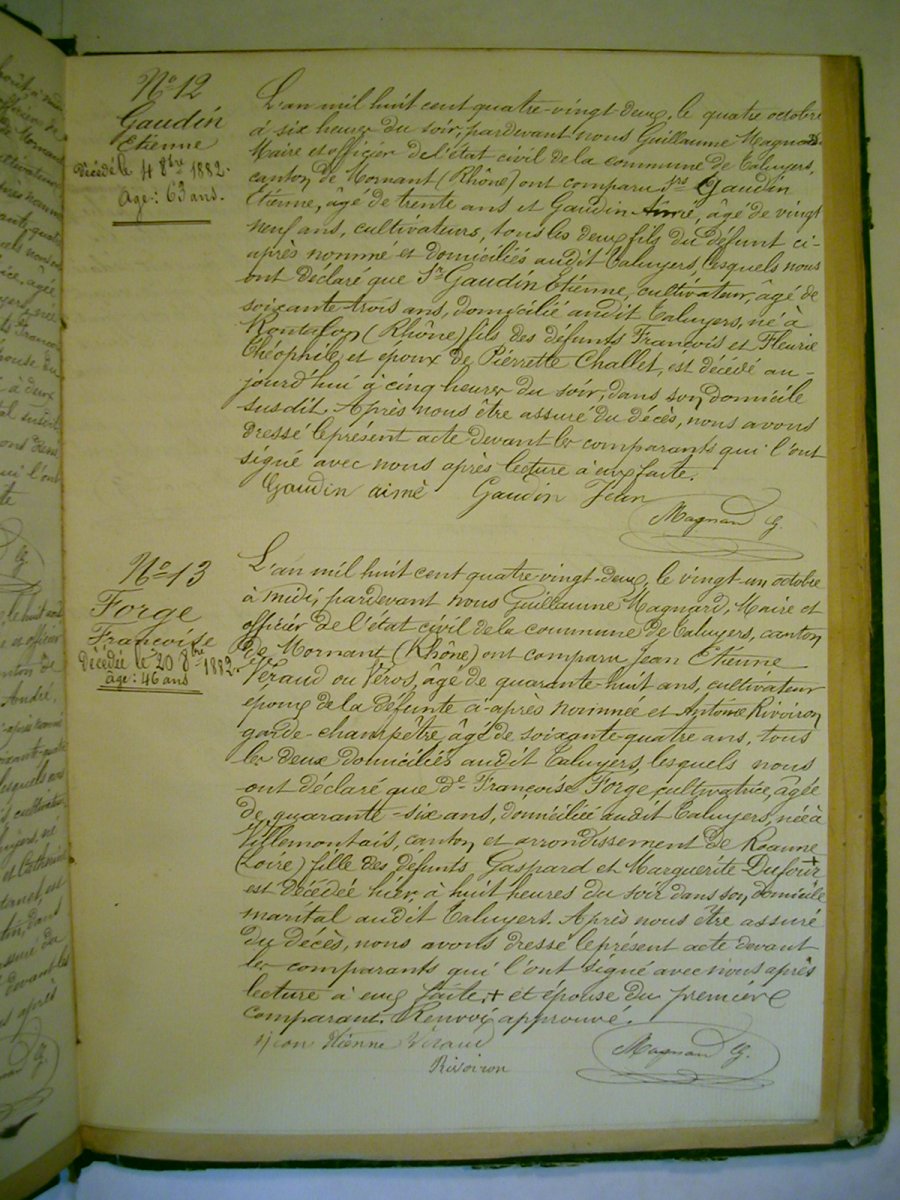 N° 12
Gaudin
Etienne
Décédé le 4 8bre 1882.
Age : 63 ans.
L'an mil huit cent quatre-vingt deux, le quatre octobre
à six heures du soir, pardevant nous Guillaume Magnard
Maire et officier de l'état civil de la commune de Taluyers,
canton de Mornant (Rhône) ont comparu Srs Gaudin
Etienne, âgé de trente ans et Gaudin Aimé, âgé de vingt
neuf ans, cultivateurs, tous les deux fils du défunt ci-
après nommé et domiciliés audit Taluyers, lesquels nous
ont déclaré que Sr Gaudin Etienne, cultivateur, âgé de
soixante-trois ans, domicilié audit Taluyers, né à
(Rhône) fils des défunts François et Fleurie
Théophile, et époux de Pierrette Challet, est décédé au-
jourd'hui à cinq heures du soir, dans son domicile
susdit. Après nous être assuré du décès, nous avons
dressé le présent acte devant les comparants qui l'ont
signé avec nous après lecture à eux faite.
Gaudin aimé Gaudin Jean
Magnard G.
N° 13
Forge
Françoise
Décédée le 20 8bre 1882.
âge : 46 ans
L'an mil huit cent quatre-vingt-deux, le vingt un octobre
à midi, pardevant nous Guillaume Magnard, Maire et
officier de l'état civil de la commune de Taluyers, canton
de Mornant (Rhône) ont comparu Jean Etienne
Véraud ou Véros, âgé de quarante-huit ans, cultivateur
époux de la défunte ci-après nommée et Antoine Rivoiron
garde-champêtre, âgé de soixante-quatre ans, tous
les deux domiciliés audit Taluyers, lesquels nous
ont déclaré que de Françoise Forge, cultivatrice, âgée
de quarante-six ans, domiciliée audit Taluyers, née à
Villemontais, canton et arrondissement de Roanne
(Loire) fille des défunts Gaspard et Marguerite Dufour +
est décédée hier, à huit heures du soir dans son domicile
marital audit Taluyers. Après nous être assuré
du décès, nous avons dressé le présent acte devant
les comparants qui l'ont signé avec nous après
lecture à eux faite. + et épouse du premier
comparant. Renvoi approuvé.
Jean Etienne Véraud
Rivoiron
Magnard G.